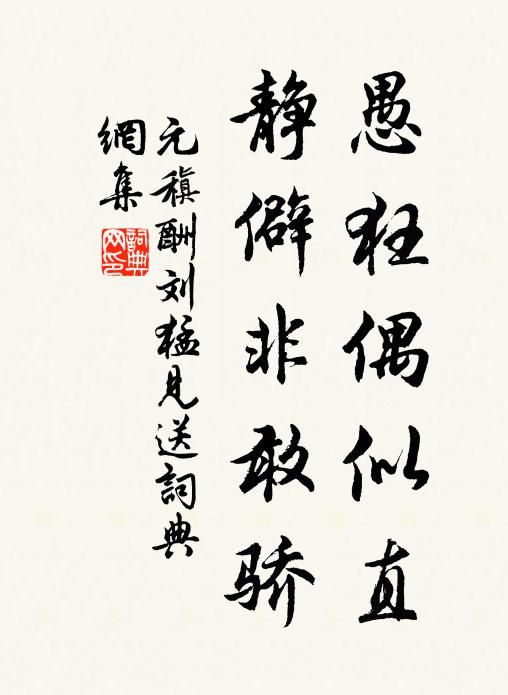 愚狂偶似直
静僻非敢骄
元稹酬刘猛见送词典
網集
詞典網印